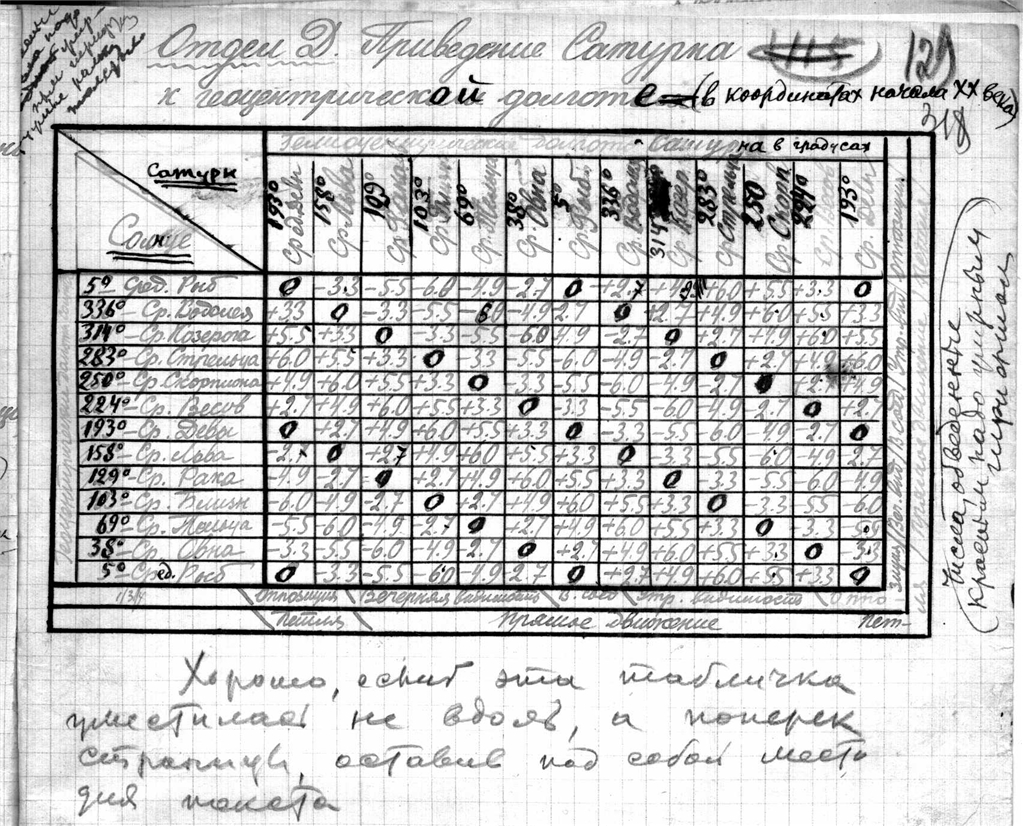 Отдел Д. Приведение Сатурна
129
к геоцентрической долготе (в координатах начала XX века)
318
Гелиоцентрическая долгота Сатурна в градусах
Сатурн
Солнце
193° Ср. Девы 158° Ср. Льва 129° Ср. Рака 103° Ср. Близн 69° Ср. Тельца 38° Ср. Овна 5° Ср. Рыб 336° Ср. Водол 314 Ср. Козер 283° Ср. Стрельца 250 Ср. Скорп 224° Ср. Весов 193° Ср. Девы
5° Сред. Рыб 0 -3.3 -5.5 -6.0 -4.9 -2.7 0 +2.7 +4.9 +6.0 +5.5 +3.3 0
336° - Ср. Водолея +3.3 0 -3.3 -5.5 -6.0 -4.9 -2.7 0 +2.7 +4.9 +6.0 +5.5 +3.3
314° - Ср. Козерога +5.5 +3.3 0 -3.3 -5.5 -6.0 -4.9 -2.7 0 +2.7 +4.9 +6.0 +5.5
283° - Ср. Стрельца +6.0 +5.5 +3.3 0 -3.3 -5.5 -6.0 -4.9 -2.7 0 +2.7 +4.9 +6.0
250° - Ср. Скорпиона +4.9 +6.0 +5.5 +3.3 0 -3.3 -5.5 -6.0 -4.9 -2.7 0 +2.7 +4.9
224° - Ср. Весов +2.7 +4.9 +6.0 +5.5 +3.3 0 -3.3 -5.5 -6.0 -4.9 -2.7 0 +2.7
193° - Ср. Девы 0 +2.7 +4.9 +6.0 +5.5 +3.3 0 -3.3 -5.5 -6.0 -4.9 -2.7 0
158° - Ср. Льва -2.7 0 +2.7 +4.9 +6.0 +5.5 +3.3 0 -3.3 -5.5 -6.0 -4.9 -2.7
129° - Ср. Рака -4.9 -2.7 0 +2.7 +4.9 +6.0 +5.5 +3.3 0 -3.3 -5.5 -6.0 -4.9
103° - Ср. Близн -6.0 -4.9 -2.7 0 +2.7 +4.9 +6.0 +5.5 +3.3 0 -3.3 -5.5 -6.0
69° - Ср. Тельца -5.5 -6.0 -4.9 -2.7 0 +2.7 +4.9 +6.0 +5.5 +3.3 0 -3.3 -5.5
38° - Ср. Овна -3.3 -5.5 -6.0 -4.9 -2.7 0 +2.7 +4.9 +6.0 +5.5 +3.3 0 -3.3
5° - Сред. Рыб 0 -3.3 -5.5 -6.0 -4.9 -2.7 0 +2.7 +4.9 +6.0 +5.5 +3.3 0
Оппозиция Вечерняя видимость В. сое Утр. видимость Оппо
Петля Прямое движение Пет-
(Числа обведенные
красным надо жирным
шрифтом
Хорошо, если б эта табличка
уместилась не вдоль, а поперек
страницы, оставив под собой место
для